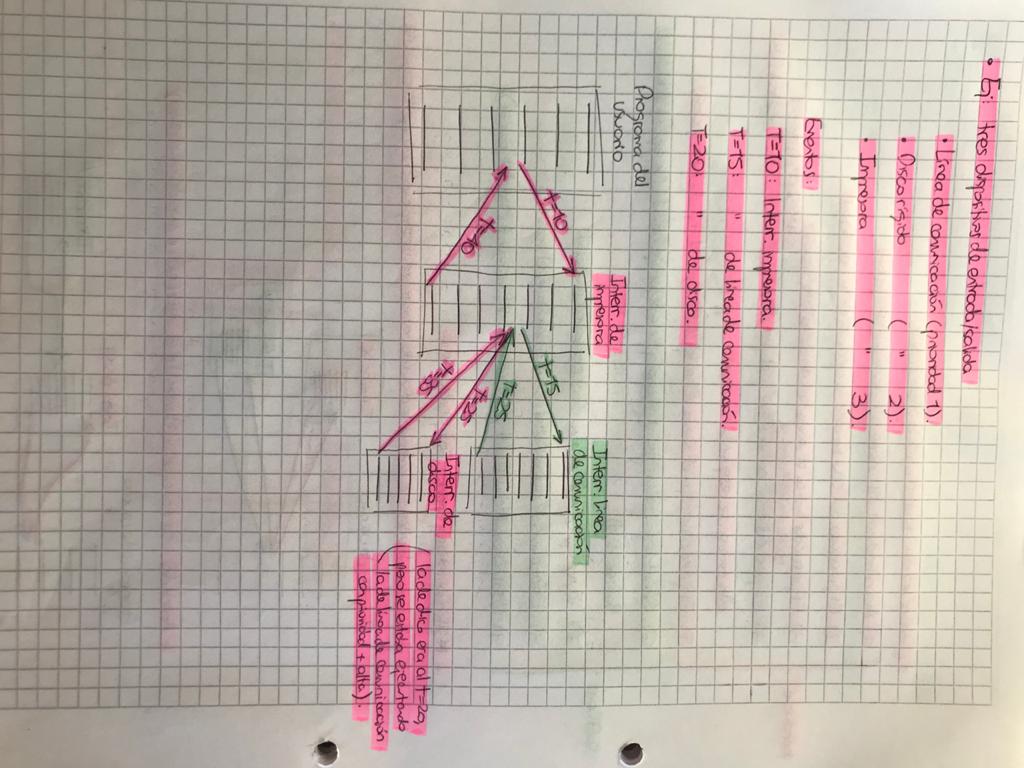 • Ej: tres dispositivos de entrada/salida
• Línea de comunicación (prioridad 1)
• Disco rígido ( " 2).
• Impresora ( " 3).
Eventos:
T=10: Interr. impresora.
T=15: " de línea de comunicación.
T=20: " de disco.
Programa del
usuario
Interr. de
impresora
Interr. línea
de comunicación
T=10
T=15
T=40
T=25
T=25
Interr. de
disco
la de disco era al T=20,
pero se estaba ejecutando
la de línea de comunicación
con prioridad + alta).